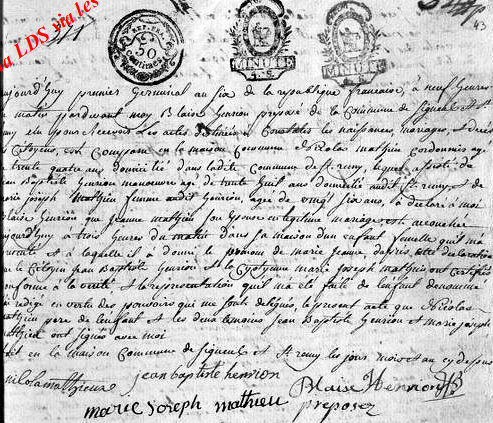 a LDS via les
43
50
centimes
MINUTE
MINUTE
aujourd'huy premier Germinal an six de la republique francaise, à neuf heures
matin pardevant moy Blaise henrion preposé de la Commune de Signeul et St
remy elu pour recevoir les actes destinés à Constater les naissances mariages, et deces
Citoyens, est Comparu en la maison Commune Nicolas mathieu Cordonnier agé
trente quatre ans domicilié dans ladite Commune de St. remy, lequel assisté de
ean Baptiste henrion manoeuvre agé de trente huit ans domicilié audit St remy, et de
marie joseph mathieu femme audit henrion, agée de vingt six ans, à declaré à moi
Blaise henrion que jeanne mathieu son Epouse en legitime mariage est accouchée
aujourd'huy à trois heures du matin dans sa maison d'un enfant femelle qu'il ma
presenté et à laquelle il à donné le prenom de marie jeanne dapres cette declaration
que le Citoyen jean Baptiste henrion et la Citoyenne marie joseph mathieu ont certifiés
conforme à la verité et la representation qu'il ma eté faite de lenfant denommé
j'ai redigé en vertu des pouvoirs qui me sont delegués, le present acte que Nicolas
mathieu pere de lenfant et les deux temoins jean Baptiste henrion et marie joseph
mathieu ont signés avec moi
fait en la maison Commune de Signeul et St remy les jours mois et an cy dessus
nicola mathieux jean baptiste henrion Blaise Henrion
marie Joseph mathieu preposez